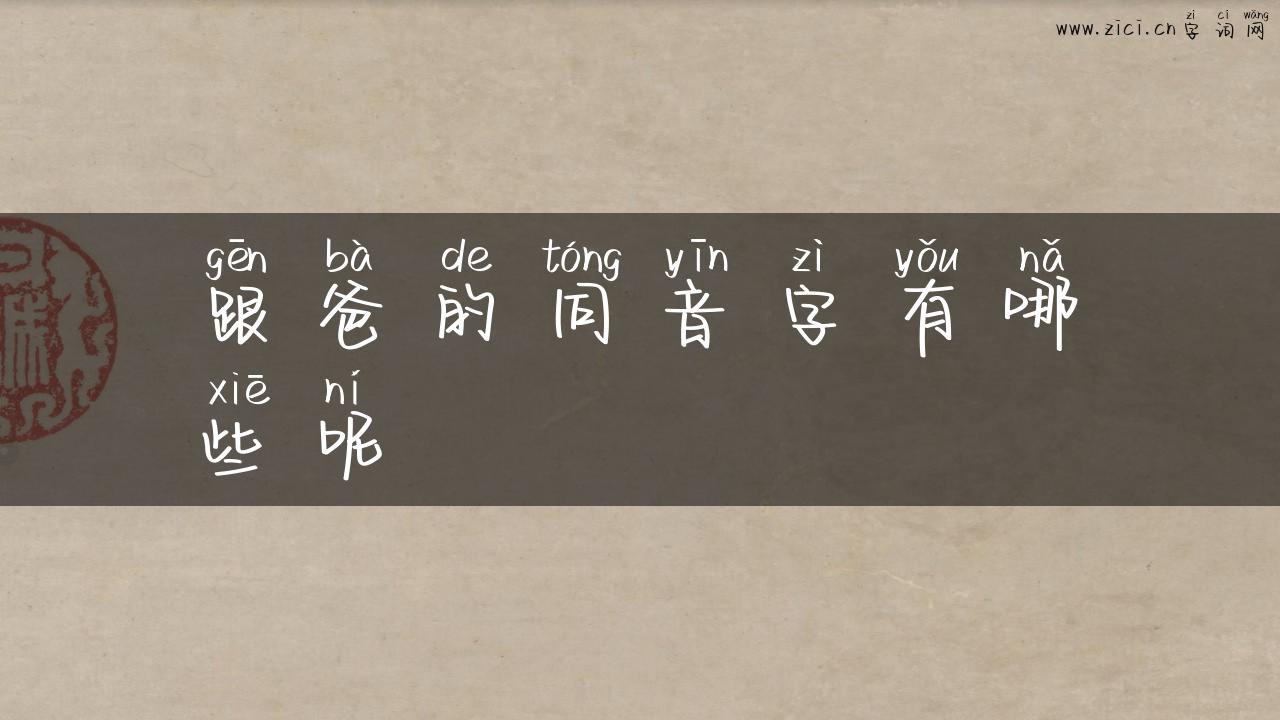 zì cí wǎng
www.zici.cn 字词网
gēn bà de tóng yīn zì yǒu nǎ
跟爸的同音字有哪
xiē ní
些呢